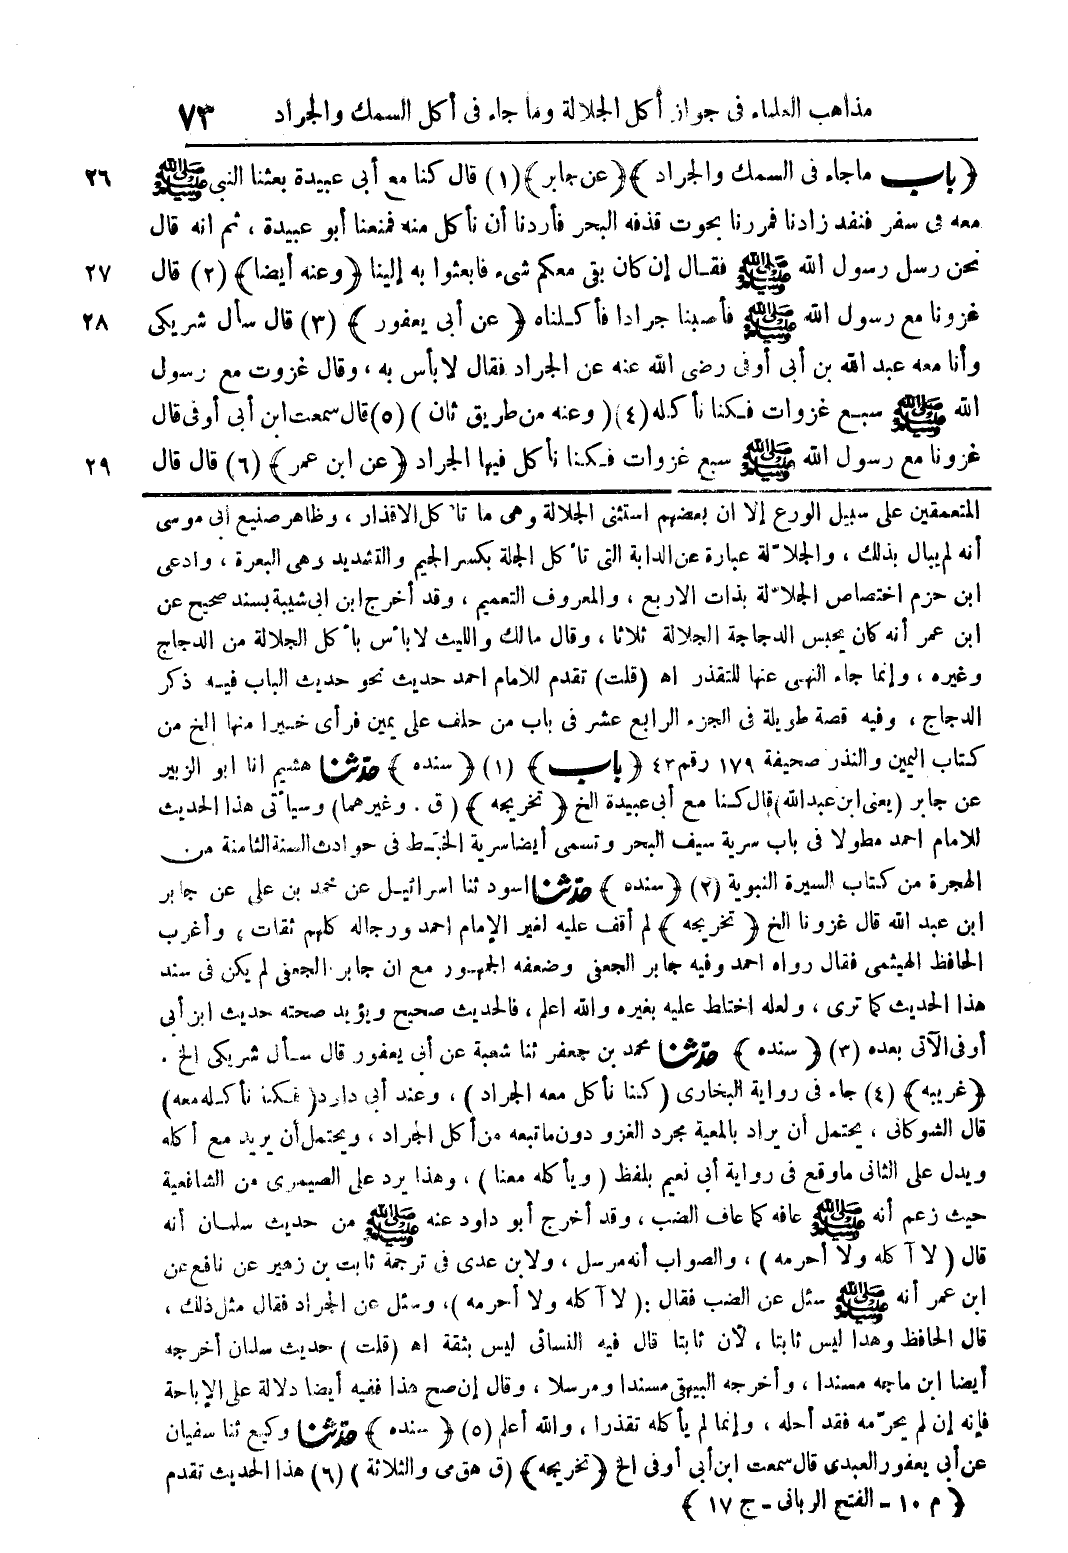 مذاهب العلماء فى جواز أكل الجلالة وما جاء فى أكل السمك والجراد ٧٣
﴿ باب ماجاء فى السمك والجراد ﴾ ﴿ عن جابر ﴾ (١) قال كنا مع أبى عبيدة بعثنا النبى ﷺ ٢٦
معه فى سفر فنفد زادنا فمررنا بحوت قذفه البحر فأردنا أن نأكل منه فمنعنا أبو عبيدة ، ثم انه قال
نحن رسل رسول الله ﷺ فقال إن كان بقى معكم شىء فابعثوا به إلينا ﴿ وعنه أيضا ﴾ (٢) قال ٢٧
غزونا مع رسول الله ﷺ فأصبنا جرادا فأكلناه ﴿ عن أبى يعفور ﴾ (٣) قال سأل شريكى ٢٨
وأنا معه عبد الله بن أبى أوفى رضى الله عنه عن الجراد فقال لا بأس به ، وقال غزوت مع رسول
الله ﷺ سبع غزوات فكنا نأكله (٤) ( وعنه من طريق ثان ) (٥) قال سمعت ابن أبى أوفى قال
غزونا مع رسول الله ﷺ سبع غزوات فكنا نأكل فيها الجراد ﴿ عن ابن عمر ﴾ (٦) قال قال ٢٩
المتعمقين على سبيل الورع إلا ان بعضهم استثنى الجلالة وهى ما تأكل الاقذار ، وظاهر صنيع ابى موسى
أنه لم يبال بذلك ، والجلالة عبارة عن الدابة التى تأكل الجلة بكسر الجيم والتشديد وهى البعرة ، وادعى
ابن حزم اختصاص الجلالة بذات الاربع ، والمعروف التعميم ، وقد أخرج ابن ابى شيبة بسند صحيح عن
ابن عمر أنه كان يحبس الدجاجة الجلالة ثلاثا ، وقال مالك والليث لا بأس بأكل الجلالة من الدجاج
وغيره ، وإنما جاء النهى عنها للتقذر اه (قلت) تقدم للامام احمد حديث نحو حديث الباب فيه ذكر
الدجاج ، وفيه قصة طويلة فى الجزء الرابع عشر فى باب من حلف على يمين فرأى خيرا منها الخ من
كتاب اليمين والنذر صحيفة ١٧٩ رقم ٤٢ ﴿ باب ﴾ (١) ﴿ سنده ﴾ حدثنا هشيم انا ابو الزبير
عن جابر (يعنى ابن عبد الله) قال كنا مع أبى عبيدة الخ ﴿ تخريجه ﴾ ( ق . وغيرهما) وسيأتى هذا الحديث
للامام احمد مطولا فى باب سرية سيف البحر وتسمى أيضا سرية الخبط فى حوادث السنة الثامنة من
الهجرة من كتاب السيرة النبوية (٢) ﴿ سنده ﴾ حدثنا اسود ثنا اسرائيل عن محمد بن على عن جابر
ابن عبد الله قال غزونا الخ ﴿ تخريجه ﴾ لم أقف عليه لغير الإمام احمد ورجاله كلهم ثقات ، وأغرب
الحافظ الهيثمى فقال رواه احمد وفيه جابر الجعفى وضعفه الجمهور مع ان جابر الجعفى لم يكن فى سند
هذا الحديث كما ترى ، ولعله اختلط عليه بغيره والله اعلم ، فالحديث صحيح ويؤيد صحته حديث ابن أبى
أوفى الآتى بعده (٣) ﴿ سنده ﴾ حدثنا محمد بن جعفر ثنا شعبة عن أبى يعفور قال سأل شريكى الخ .
﴿ غريبه ﴾ (٤) جاء فى رواية البخارى ( كنا نأكل معه الجراد ) ، وعند أبى داود ( فكنا نأكله معه )
قال الشوكانى ، يحتمل أن يراد بالمعية مجرد الغزو دون ما تبعه من أكل الجراد ، ويحتمل أن يريد مع أكله
ويدل على الثانى ماوقع فى رواية أبى نعيم بلفظ ( ويأكله معنا ) ، وهذا يرد على الصيمرى من الشافعية
حيث زعم أنه ﷺ عافه كما عاف الضب ، وقد أخرج أبو داود عنه ﷺ من حديث سلمان أنه
قال ( لا آكله ولا أحرمه ) ، والصواب أنه مرسل ، ولابن عدى فى ترجمة ثابت بن زهير عن نافع عن
ابن عمر أنه ﷺ سئل عن الضب فقال : ( لا آكله ولا أحرمه ) ، وسئل عن الجراد فقال مثل ذلك ،
قال الحافظ وهذا ليس ثابتا ، لأن ثابتا قال فيه النسائى ليس بثقة اه (قلت ) حديث سلمان أخرجه
أيضا ابن ماجه مسندا ، وأخرجه البيهقى مسندا ومرسلا ، وقال إن صح هذا ففيه أيضا دلالة على الإباحة
فإنه إن لم يحرّمه فقد أحله ، وإنما لم يأكله تقذرا ، والله أعلم (٥) ﴿ سنده ﴾ حدثنا وكيع ثنا سفيان
عن أبى يعفور العبدى قال سمعت ابن أبى أوفى الخ ﴿ تخريجه ﴾ (ق هق مى والثلاثة ) (٦) هذا الحديث تقدم
﴿ م ١٠ – الفتح الربانى – ج ١٧ ﴾